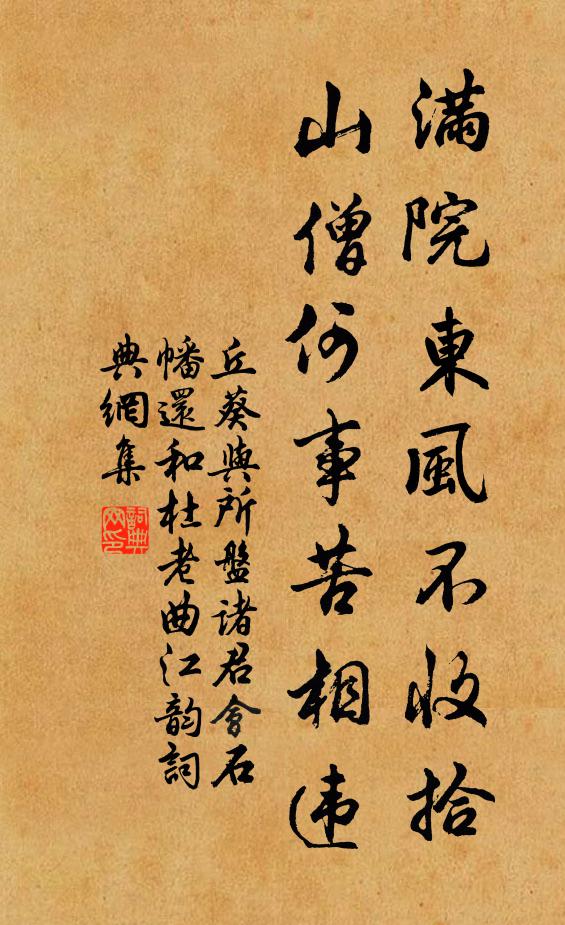 滿院東風不收拾
山僧何事苦相違
丘葵與所盤諸君會石
幡還和杜老曲江韵詞
典網集
詞典
网印